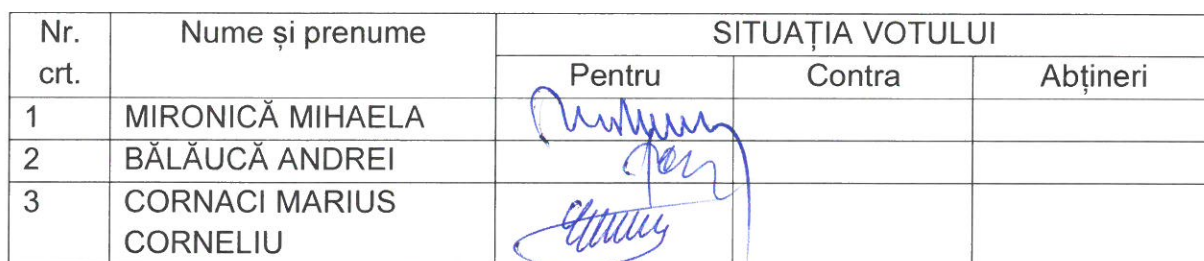 Nr. crt. Nume și prenume SITUAȚIA VOTULUI
Pentru Contra Abțineri
1 MIRONICĂ MIHAELA
2 BĂLĂUCĂ ANDREI
3 CORNACI MARIUS
CORNELIU